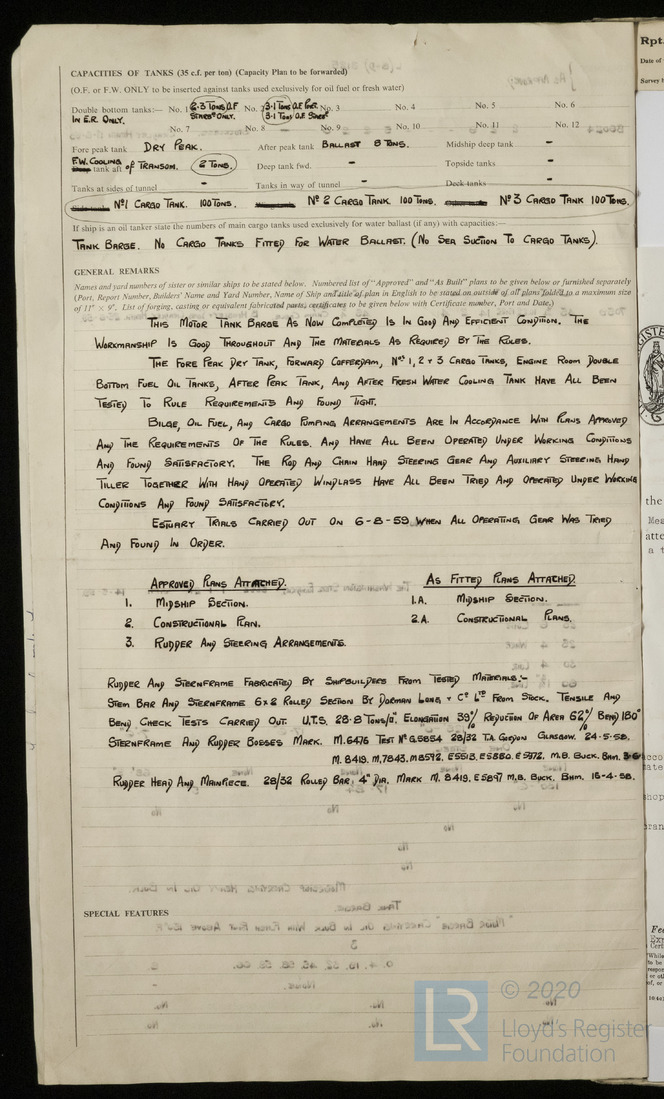 CAPACITIES OF TANKS (35 c.f. per ton) (Capacity Plan to be forwarded)
(O.F. or F.W. ONLY to be inserted against tanks used exclusively for oil fuel or fresh water)
Double bottom tanks:— No. 1 2·3 Tons O.F. Starbd Only. No. 2 3·1 Tons O.F. Port 3·1 Tons O.F. Starbd No. 3 No. 4 No. 5 No. 6
In E.R. Only.
No. 7 No. 8 No. 9 No. 10 No. 11 No. 12
Fore peak tank Dry Peak. After peak tank Ballast 8 Tons. Midship deep tank -
F.W. Cooling tank aft of Transom. 2 Tons. Deep tank fwd. - Topside tanks -
Tanks at sides of tunnel - Tanks in way of tunnel - Deck tanks -
No 1 Cargo Tank. 100 Tons. No 2 Cargo Tank 100 Tons. No 3 Cargo Tank 100 Tons.
If ship is an oil tanker state the numbers of main cargo tanks used exclusively for water ballast (if any) with capacities:—
Tank Barge. No Cargo Tanks Fitted For Water Ballast. (No Sea Suction To Cargo Tanks).
GENERAL REMARKS
Names and yard numbers of sister or similar ships to be stated below. Numbered list of "Approved" and "As Built" plans to be given below or furnished separately
(Port, Report Number, Builders' Name and Yard Number, Name of Ship and title of plan in English to be stated on outside of all plans folded to a maximum size
of 11" × 9". List of forging, casting or equivalent fabricated parts, certificates to be given below with Certificate number, Port and Date.)
This Motor Tank Barge As Now Completed Is In Good And Efficient Condition. The
Workmanship Is Good Throughout And The Materials As Required By The Rules.
The Fore Peak Dry Tank, Forward Cofferdam, Nos 1, 2 & 3 Cargo Tanks, Engine Room Double
Bottom Fuel Oil Tanks, After Peak Tank, And After Fresh Water Cooling Tank Have All Been
Tested To Rule Requirements And Found Tight.
Bilge, Oil Fuel, And Cargo Pumping Arrangements Are In Accordance With Plans Approved
And The Requirements Of The Rules. And Have All Been Operated Under Working Conditions
And Found Satisfactory. The Rod And Chain Hand Steering Gear And Auxiliary Steering Hand
Tiller Together With Hand Operated Windlass Have All Been Tried And Operated Under Working
Conditions And Found Satisfactory.
Estuary Trials Carried Out On 6-8-59 When All Operating Gear Was Tried
And Found In Order.
Approved Plans Attached. As Fitted Plans Attached
1. Midship Section. 1.A. Midship Section.
2. Constructional Plan. 2.A. Constructional Plans.
3. Rudder And Steering Arrangements.
Rudder And Sternframe Fabricated By Shipbuilders From Tested Materials:-
Stem Bar And Sternframe 6×2 Rolled Section By Dorman Long & Co Ltd From Stock. Tensile And
Bend Check Tests Carried Out. U.T.S. 28·8 Tons/□" Elongation 39% Reduction Of Area 62% Bend 180°
Sternframe And Rudder Bosses Mark. M.6476 Test No G.5854 28/32 T.A. Gordon Glasgow. 24-5-58.
M.8419. M.7843. M8592. E5513. E5880. E5972. M.B. Buck. Bhm.
Rudder Head And Mainpiece. 28/32 Rolled Bar, 4" Dia. Mark M.8419. E5897 M.B. Buck. Bhm. 16-4-58.
SPECIAL FEATURES
LR © 2020
Lloyd's Register
Foundation
Rpt.
Date of
Survey
the